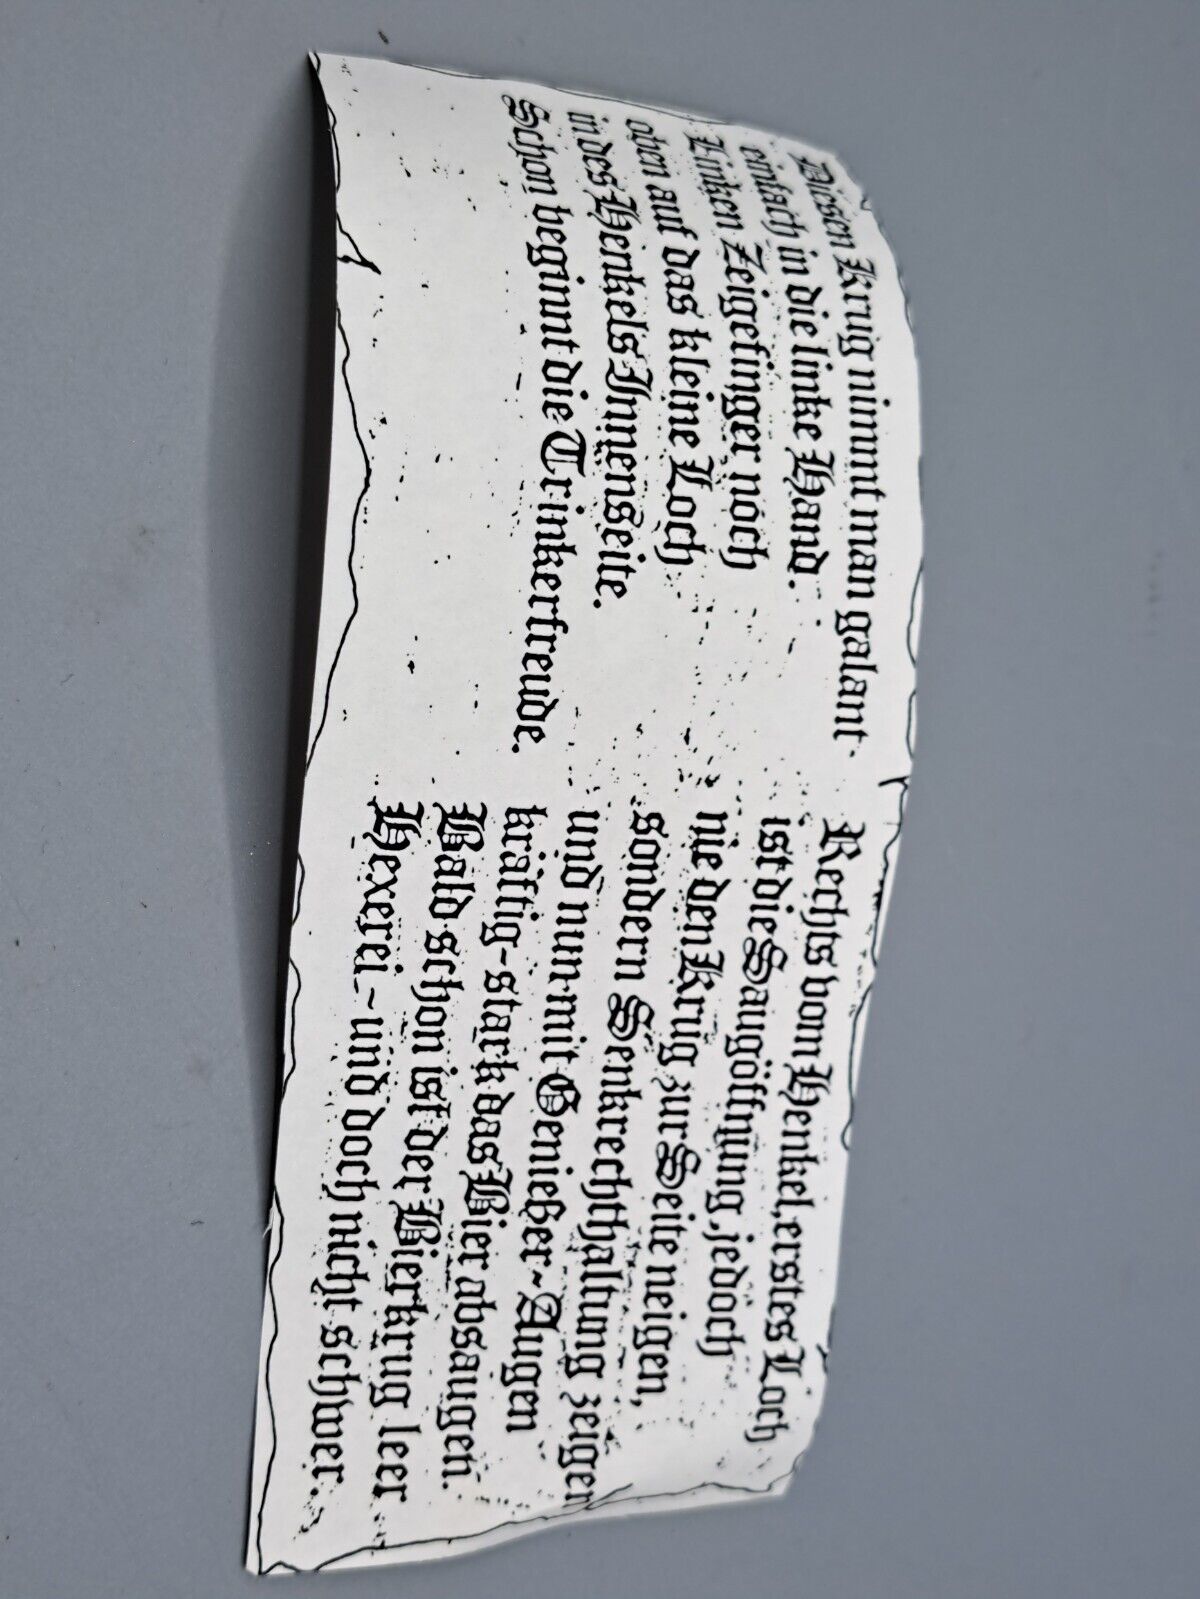 Diesen Krug nimmt man galant
einfach in die linke Hand.
Linken Zeigefinger noch
oben auf das kleine Loch
in des Henkels Innenseite.
Schon beginnt die Trinkerfreude.
Rechts vom Henkel, erstes Loch
ist die Saugöffnung, jedoch
nie den Krug zur Seite neigen,
sondern Senkrechthaltung zeigen
und nun mit Genießer-Augen
kräftig-stark das Bier absaugen.
Bald schon ist der Bierkrug leer
Hexerei - und doch nicht schwer.